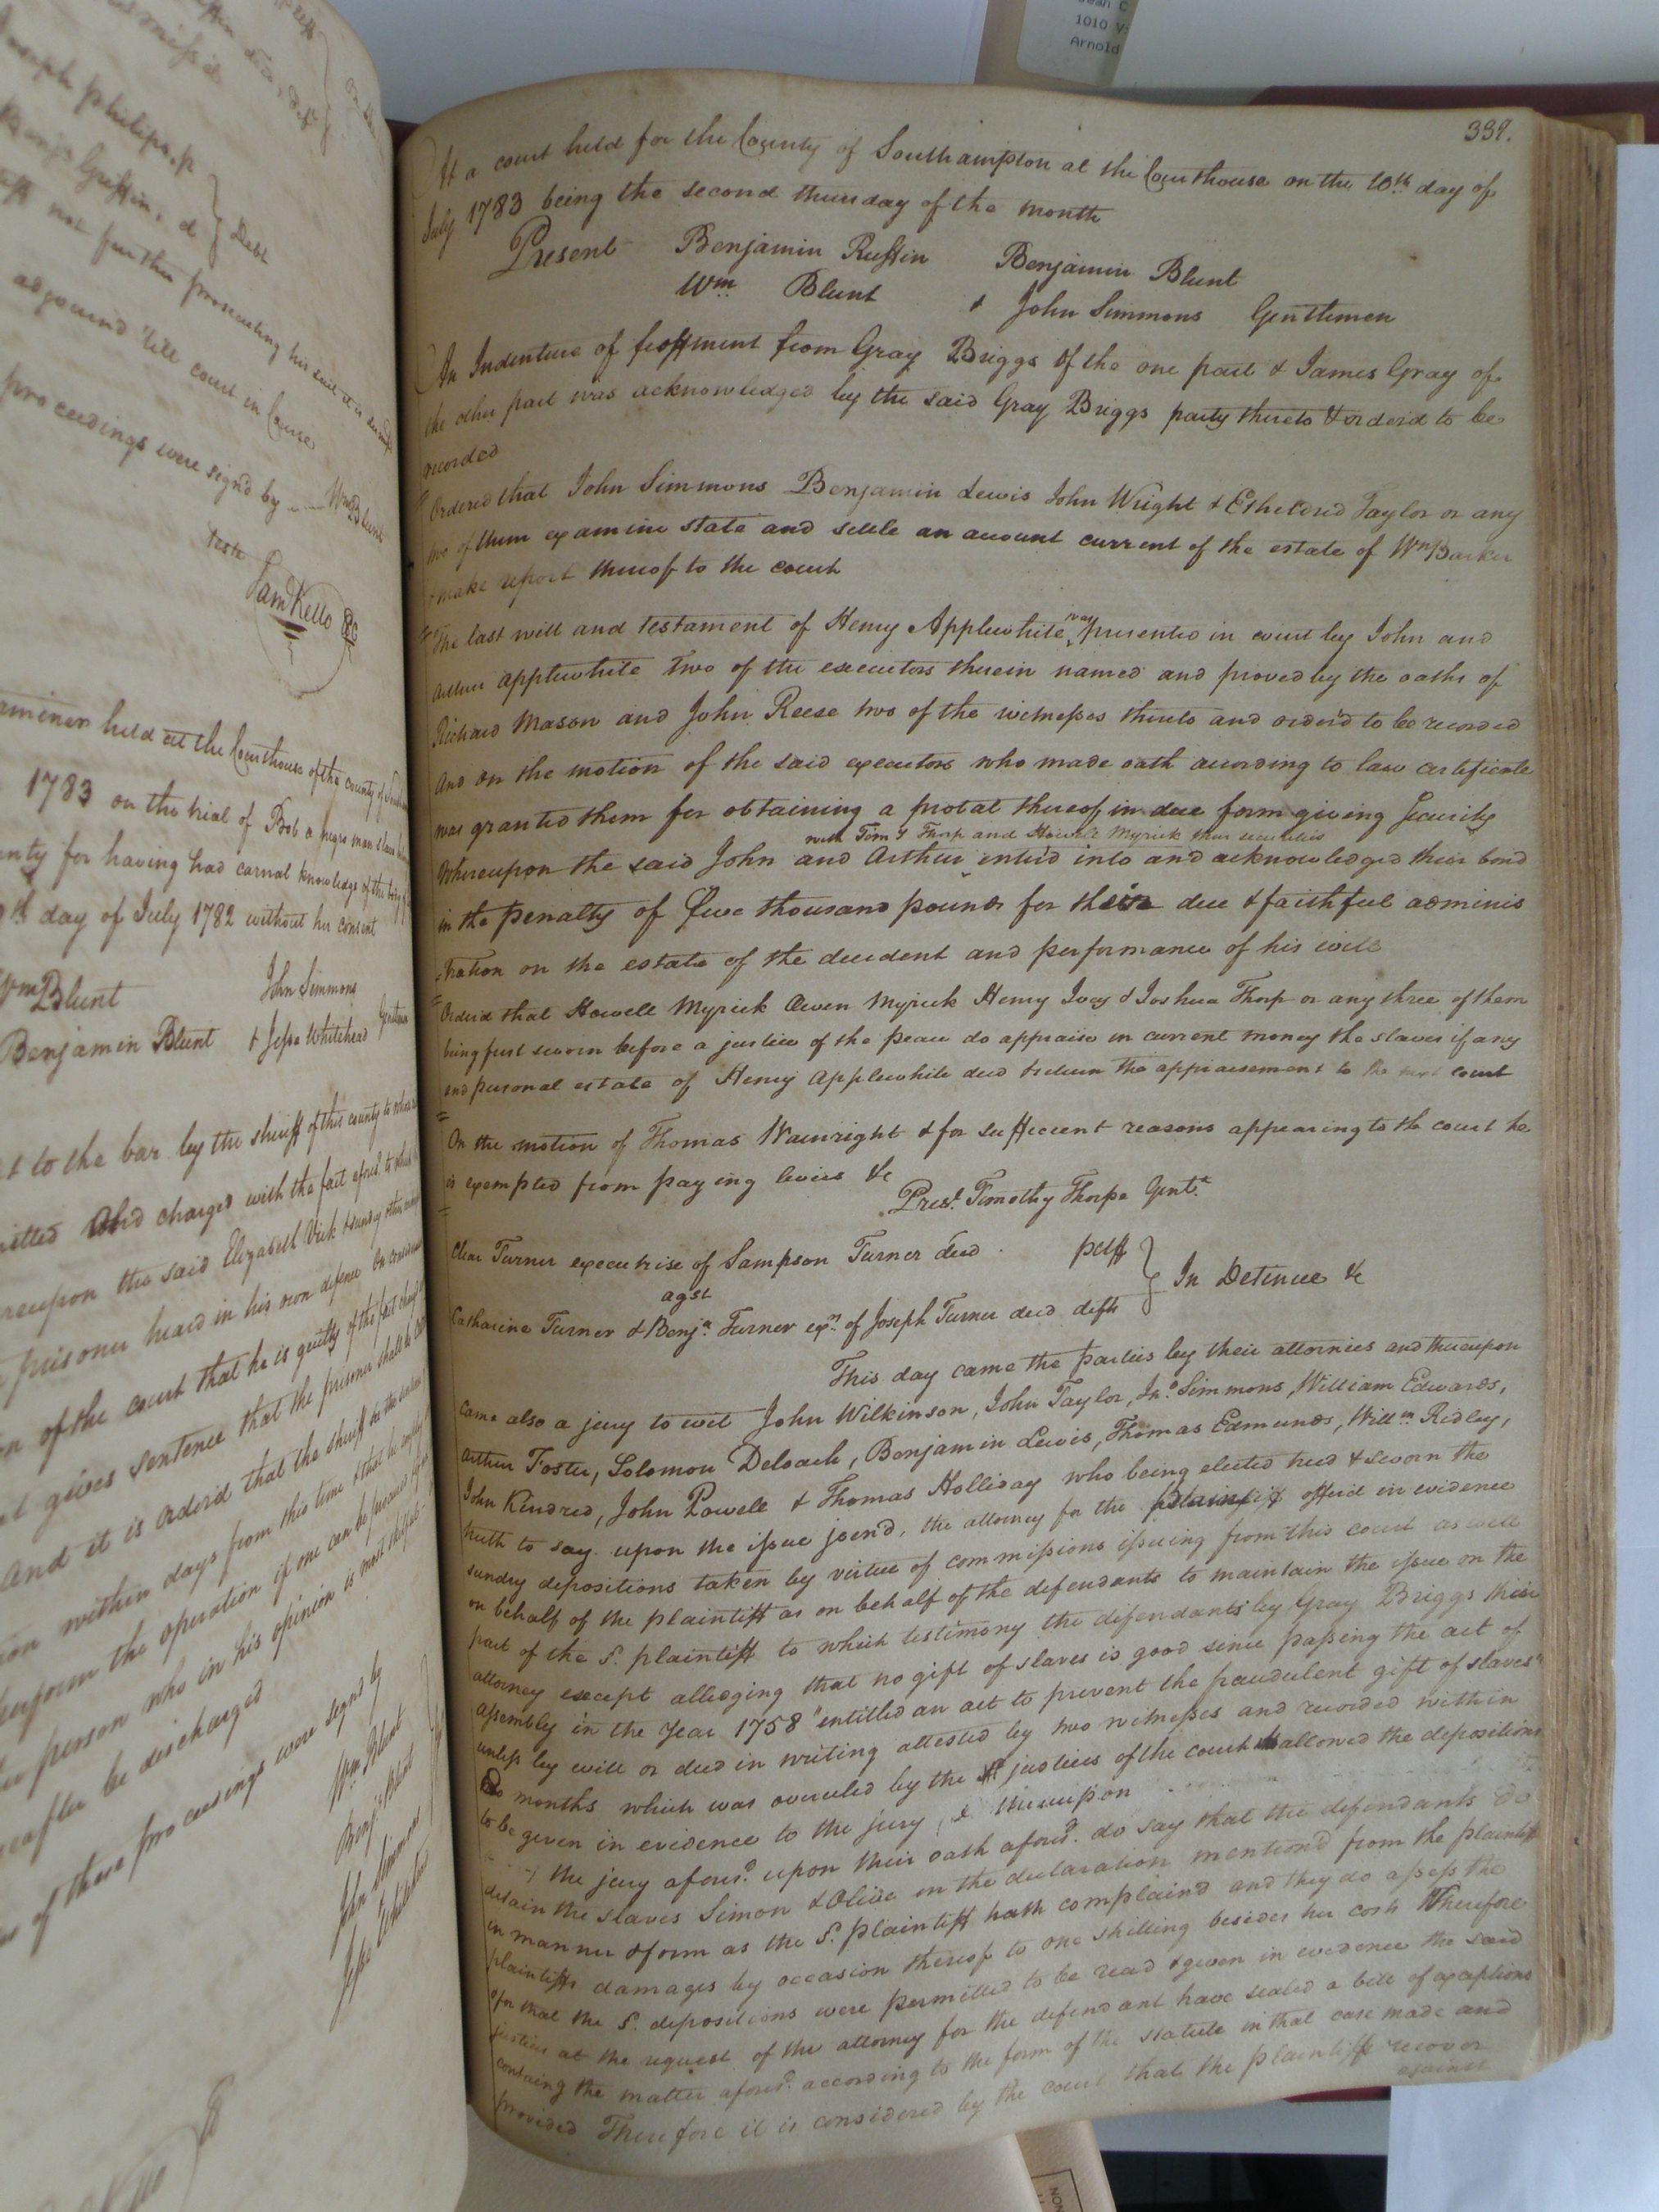 Joseph philips. p
Benja Griffin. d } Debt
not further prosecuting his suit it is
adjournd 'till court in Course
proceedings were signd by Wm Blunt
teste
Sam Kello CC
held at the Courthouse of the county of
1783 on the trial of Bob a negro man slave
for having had carnal knowledge of the body of
day of July 1782 without her consent
Wm Blunt John Simmons
Benjamin Blunt & Jesse Whitehead Gentlemen
to the bar by the sheriff of this county to whose
and charged with the fact afores.d to which
the said Elizabeth Vick & sundry other
prisoner heard in his own defence On consideration
of the court that he is guilty of the fact
gives sentence that the prisoner shall be
And it is orderd that the sheriff
within days from this time & that he employ
perform the operation if one can be procured
person who in his opinion is most skilful
be discharged
of these proceedings were signd by
Wm Blunt
Benj.a Blunt
John Simmons
Jesse Whitehead
1010
Arnold
339.
At a court held for the County of Southampton at the Courthouse on the 10th day of
July 1783 being the second thursday of the month
Present Benjamin Ruffin Benjamin Blunt
Wm Blunt & John Simmons Gentlemen
An Indenture of feoffment from Gray Briggs of the one part & James Gray of
the other part was acknowledged by the said Gray Briggs party thereto & orderd to be
recorded
Ordered that John Simmons Benjamin Lewis John Wright & Etheldred Taylor or any
two of them examine state and settle an account current of the estate of Wm Barker
& make report thereof to the court
The last will and testament of Henry Applewhite was presented in court by John and
Arthur Applewhite two of the executors therein named and proved by the oaths of
Richard Mason and John Reese two of the witnesses thereto and orderd to be recorded
And on the motion of the said executors who made oath according to law certificate
was granted them for obtaining a probat thereof in due form giving Security
with Tim.y Thorp and Howell Myrick their securities
Whereupon the said John and Arthur enterd into and acknowledged their bond
in the penalty of five thousand pounds for their due & faithful adminis
:tration on the estate of the decedent and performance of his will
Orderd that Howell Myrick Owen Myrick Henry Ivey & Joshua Thorp or any three of them
being first sworn before a justice of the peace do appraise in current money the slaves if any
and personal estate of Henry Applewhite decd & return the appraisement to the next court
On the motion of Thomas Wainright & for sufficient reasons appearing to the court he
is exempted from paying levies &c
Pres.t Timothy Thorpe Gent.n
Turner executrix of Sampson Turner decd pltff }
agst } In Detinue &c
Catharine Turner & Benj.a Turner ex.rs of Joseph Turner decd defts
This day came the parties by their attornies and thereupon
came also a jury to wit John Wilkinson, John Taylor, Jn.o Simmons, William Edwards,
Arthur Foster, Solomon Deloach, Benjamin Lewis, Thomas Edmunds, Will.m Ridley,
John Kindred, John Powell & Thomas Holliday who being elected tried & sworn the
truth to say upon the issue joind, the attorney for the plaintiff offerd in evidence
sundry depositions taken by virtue of commissions issuing from this court as well
on behalf of the plaintiff as on behalf of the defendants to maintain the issue on the
part of the s.d plaintiff to which testimony the defendants by Gray Briggs their
attorney except alledging that no gift of slaves is good since passing the act of
assembly in the Year 1758 "entitled an act to prevent the fraudulent gift of slaves"
unless by will or deed in writing attested by two witnesses and recorded within
months which was overruled by the justices of the court allowed the depositions
to be given in evidence to the jury, & thereupon
the jury afores.d upon their oath afores.d do say that the defendants do
detain the slaves Simon & Olive in the declaration mentiond from the plaintiff
in manner & form as the s.d plaintiff hath complaind and they do assess the
plaintiffs damages by occasion thereof to one shilling besides her costs Therefore
for that the s.d depositions were permitted to be read & given in evidence the said
justices at the request of the attorney for the defendant have sealed a bill of exceptions
containg the matter afores.d according to the form of the statute in that case made and
provided Therefore it is considered by the court that the plaintiff recover
against